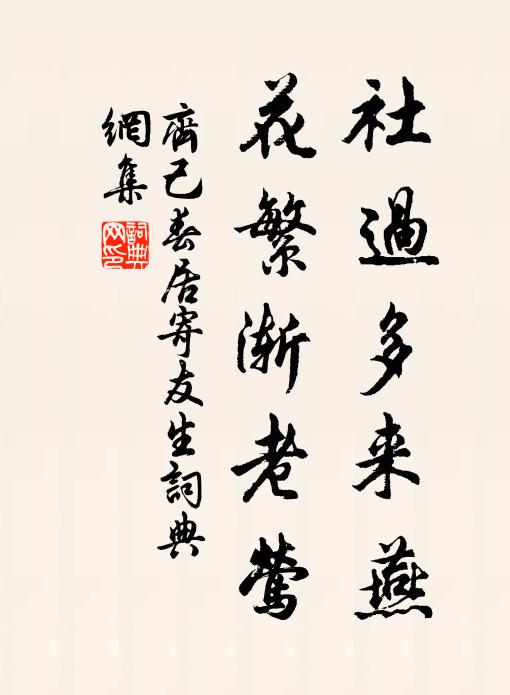 社過多来燕
花繁漸老鶯
齊己春居寄友生詞典
網集
詞典
网印